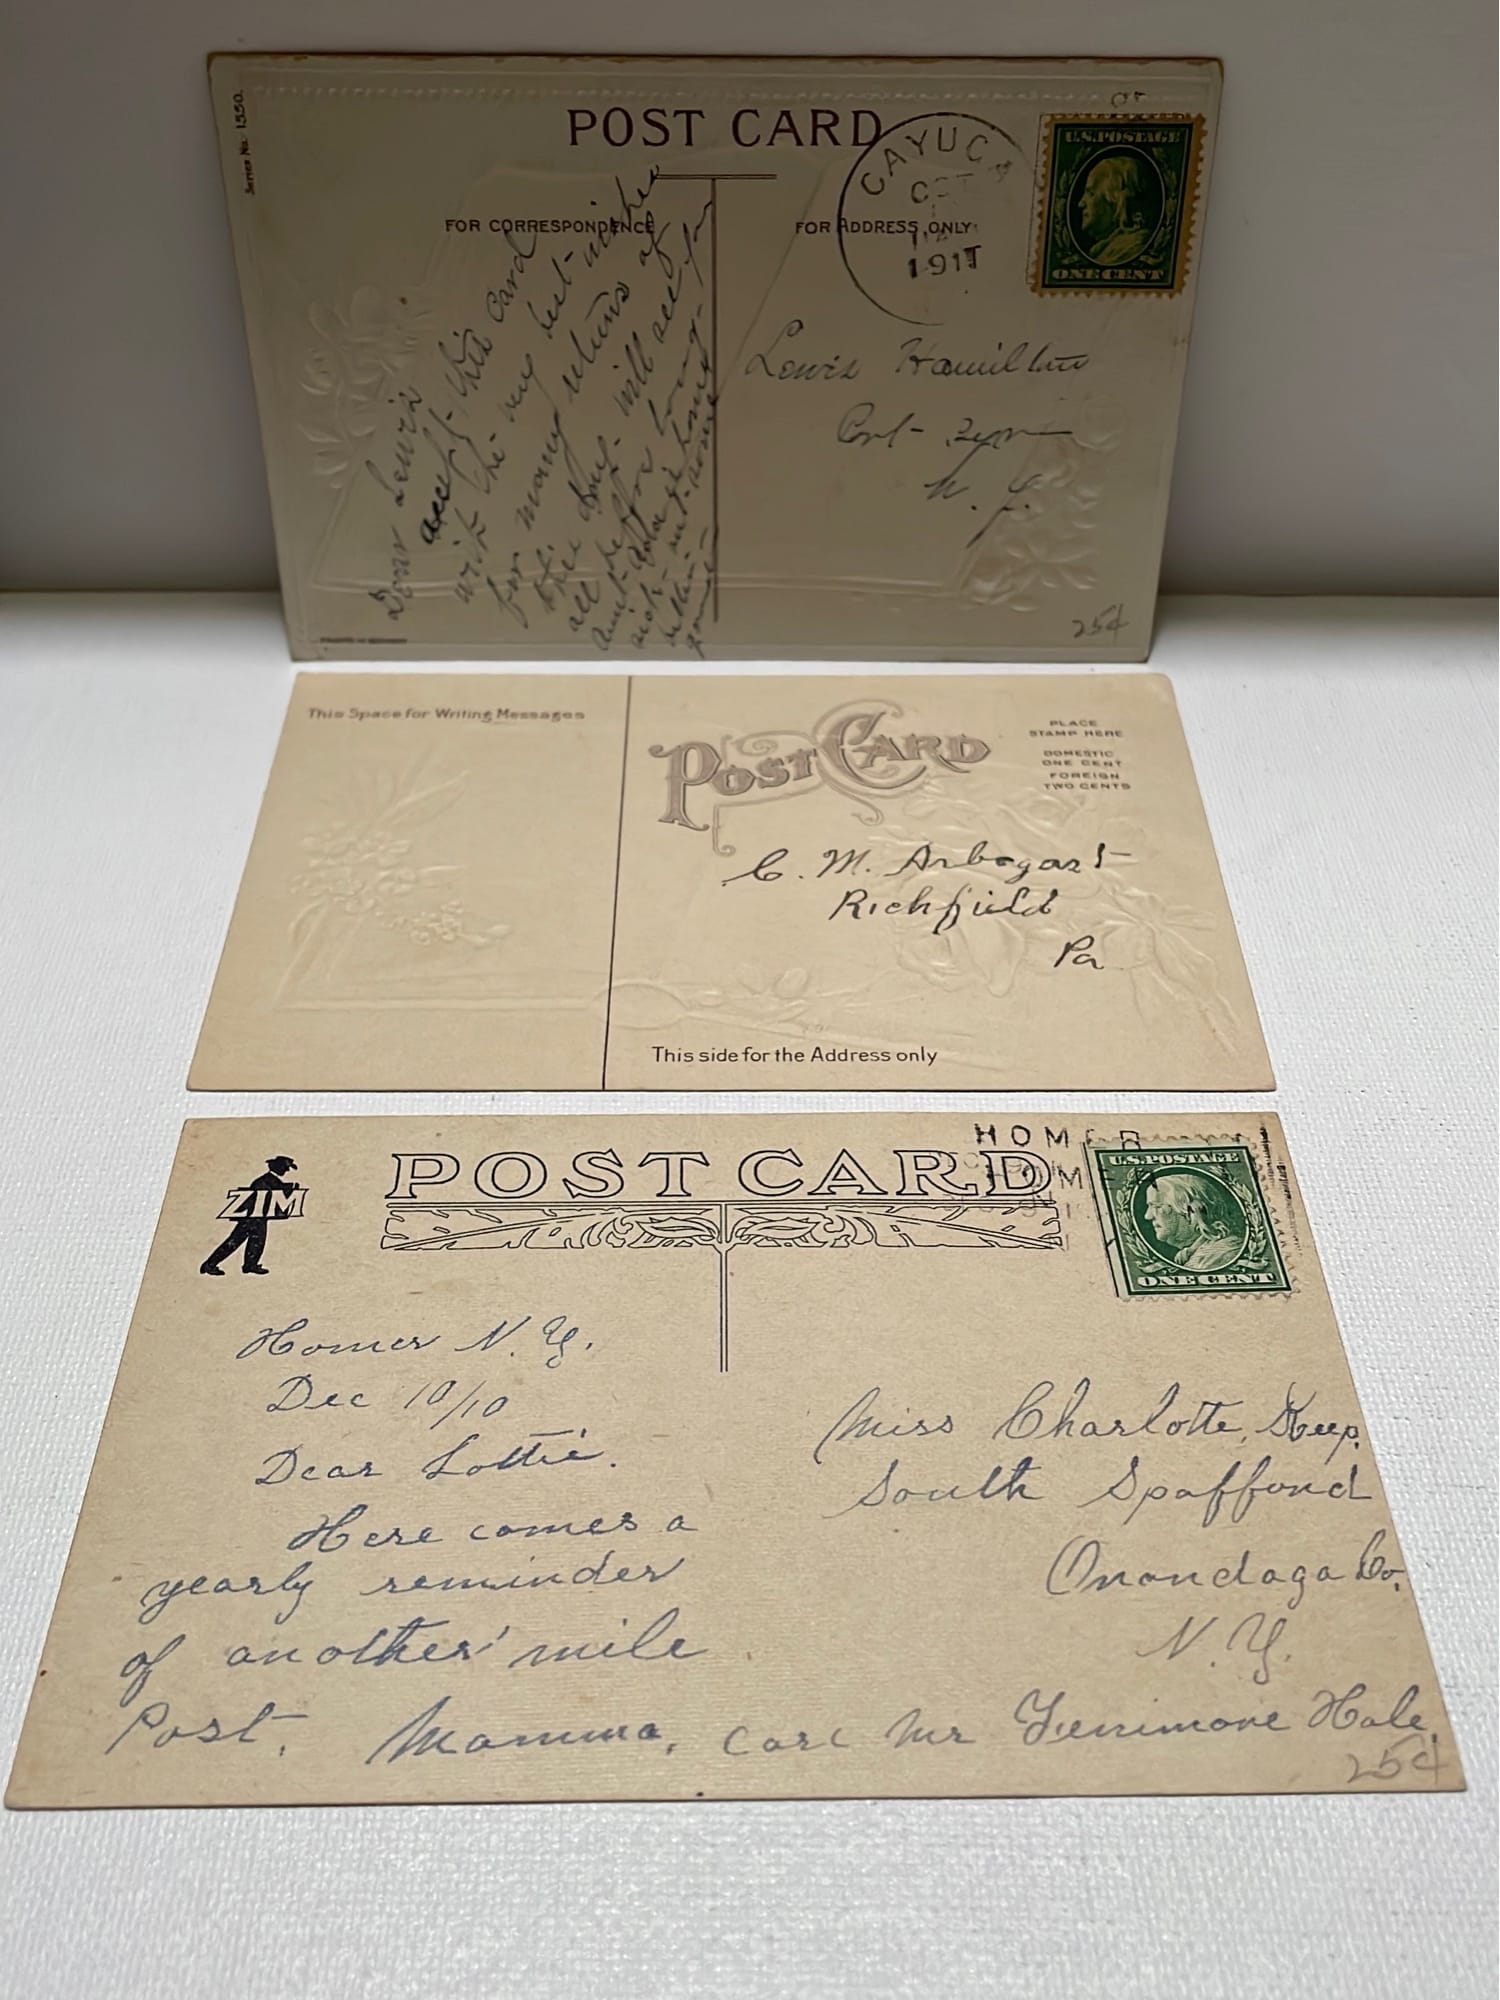 Series No. 1550.
POST CARD
CAYUGA
OCT
1911
U.S. POSTAGE
ONE CENT
FOR CORRESPONDENCE
FOR ADDRESS ONLY
Dear Lewis
accept this card
with the very best wishes
for many returns of
the day. will see
all before long.
Lewis Hamilton
Port Byron
N. Y.
25¢
This Space for Writing Messages
POST CARD
PLACE
STAMP HERE
DOMESTIC
ONE CENT
FOREIGN
TWO CENTS
C. M. Arbogast
Richfield
Pa
This side for the Address only
ZIM
POST CARD
HOMER
U.S. POSTAGE
ONE CENT
Homer N. Y.
Dec 10/10
Dear Lottie.
Here comes a
yearly reminder
of another mile
Post. Mamma.
Miss Charlotte Keep.
South Spafford
Onondaga Co.
N. Y.
Care Mr Fennimore Hale.
25¢